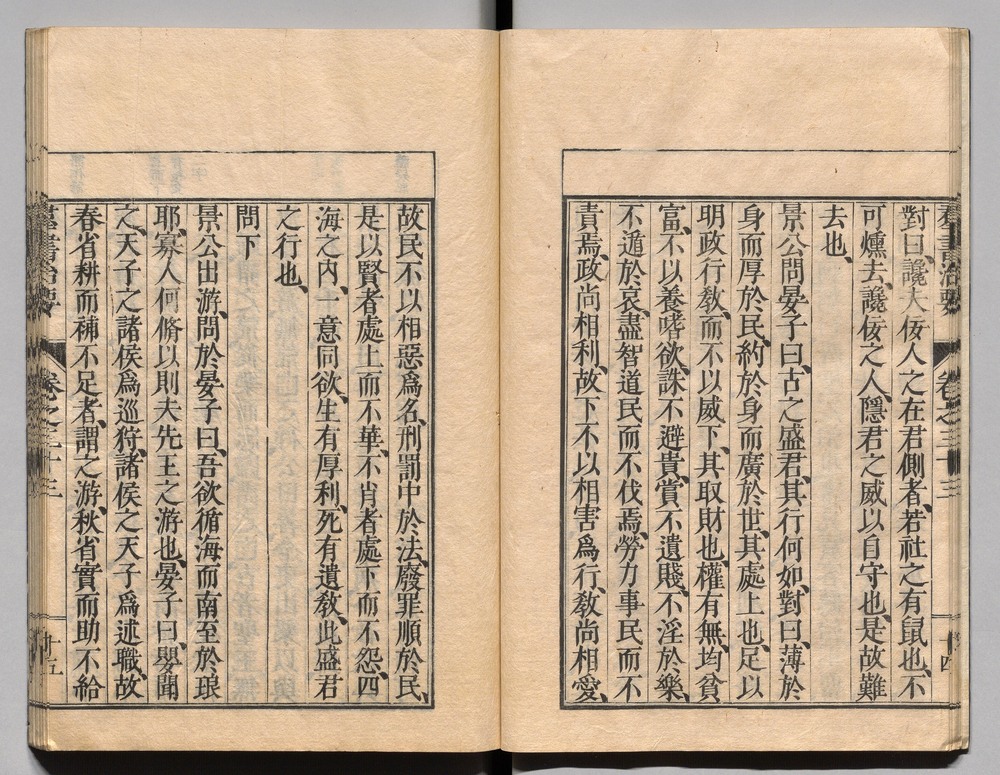 羣書治要　卷之三十三　十四
對曰、讒夫佞人之在君側者、若社之有鼠也、不
可燻去、讒佞之人、隱君之威以自守也、是故難
去也、
景公問晏子曰、古之盛君、其行何如、對曰、薄於
身而厚於民、約於身而廣於世、其處上也、足以
明政行敎、而不以威下、其取財也、權有無、均貧
富、不以養嗜欲、誅不避貴、賞不遺賤、不淫於樂、
不遁於哀、盡智道民而不伐焉、勞力事民而不
責焉、政尚相利、故下不以相害爲行、敎尚相愛、
故民不以相惡爲名、刑罰中於法、廢罪順於民、
是以賢者處上而不華、不肖者處下而不怨、四
海之內、一意同欲、生有厚利、死有遺敎、此盛君
之行也、
問下
景公出游、問於晏子曰、吾欲循海而南至於琅
耶、寡人何脩以則夫先王之游也、晏子曰、嬰聞
之、天子之諸侯爲巡狩、諸侯之天子爲述職、故
春省耕而補不足者、謂之游、秋省實而助不給
羣書治要　卷之三十三　十五